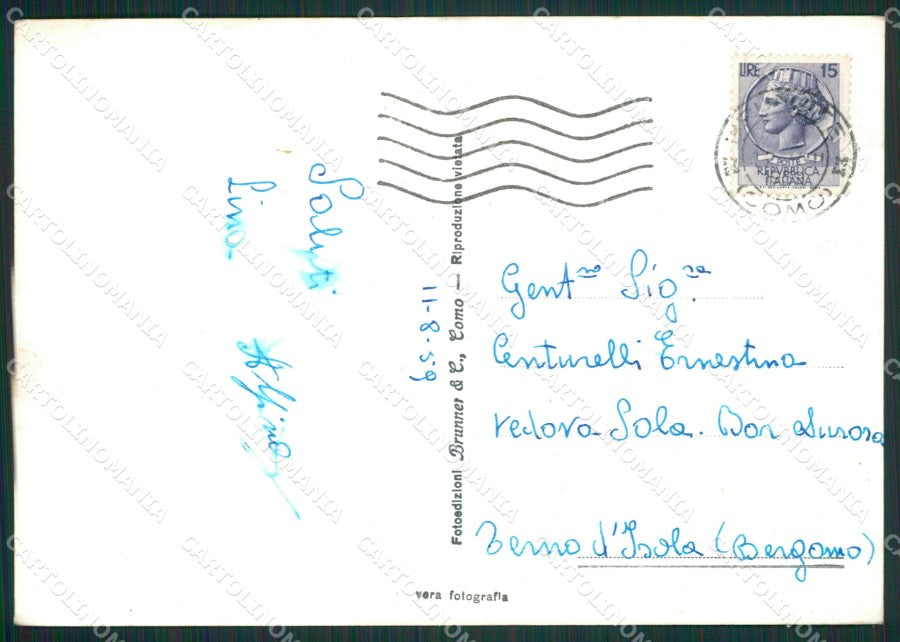 Saluti
Lina
11-8-59
Fotoedizioni Brunner & C., Como — Riproduzione vietata
LIRE 15
POSTE
REPVBBLICA
ITALIANA
(COMO)
Gent.ma Sig.ra
Centurelli Ernestina
vedova Sola. Bar Aurora
Terno d'Isola (Bergamo)
vera fotografia
CARTOLINOMANIA